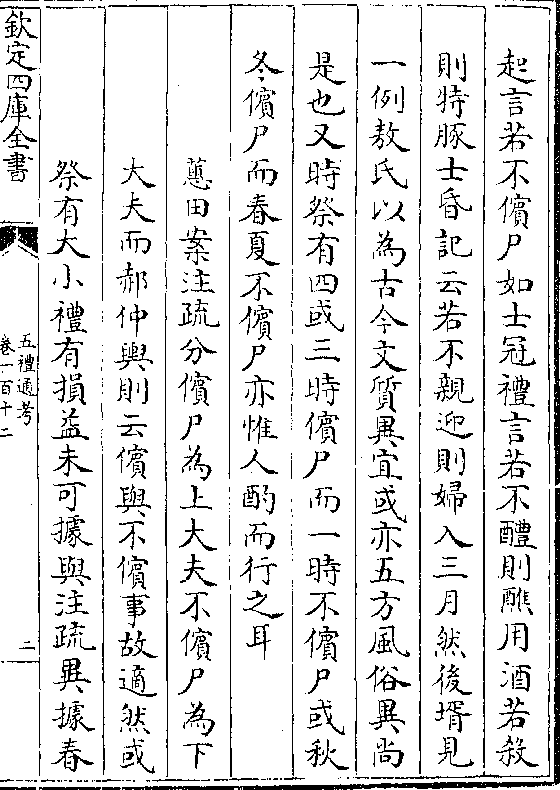 起言若不儐尸如士冠禮言若不醴則醮用酒若殺
則特豚士昏記云若不親迎則婦入三月然後壻見
一例敖氏以為古今文質異宜或亦五方風俗異尚
是也又時祭有四或三時儐尸而一時不儐尸或秋
冬儐尸而春夏不儐尸亦惟人酌而行之耳
蕙田案注疏分儐尸為上大夫不儐尸為下
大夫而郝仲輿則云儐與不儐事故適然或
祭有大小禮有損益未可據與注疏異據春
欽定四庫全書
五禮通考
卷一百十二
二